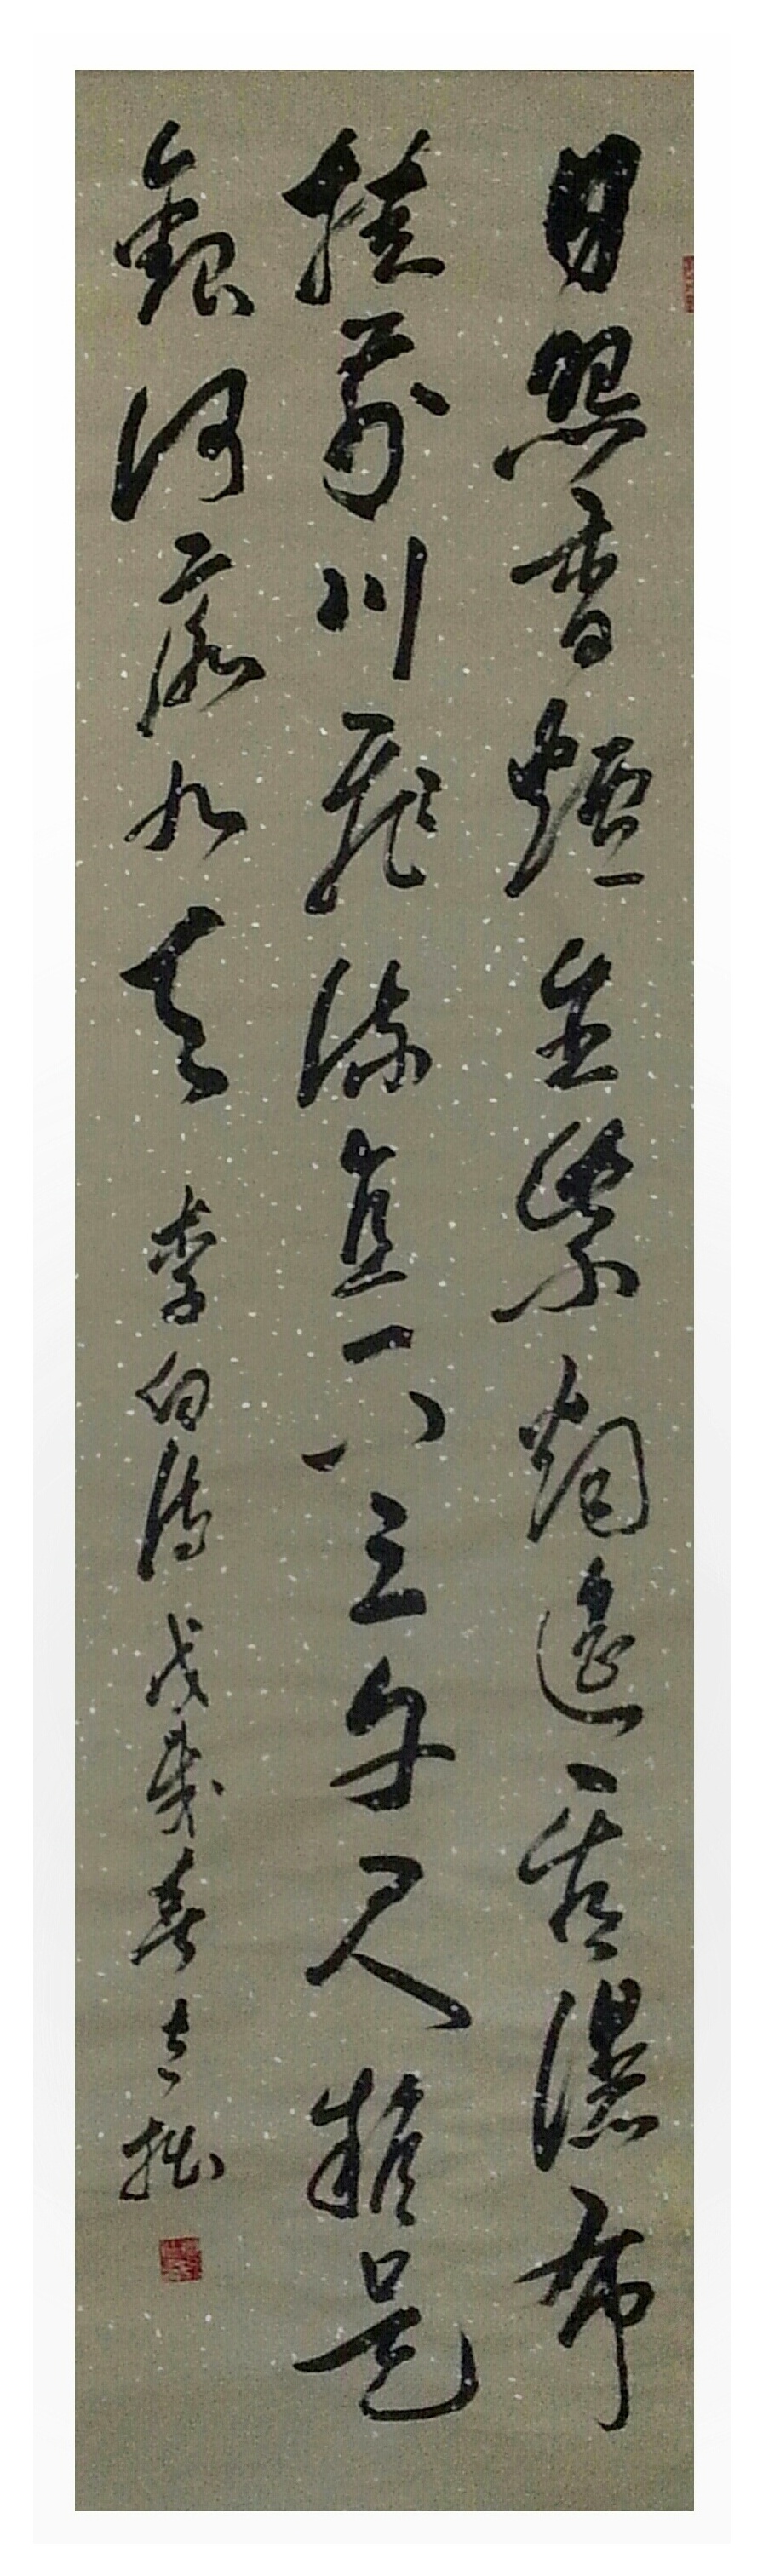 日照香爐生紫烟遙看瀑布
挂前川飛流直下三千尺疑是
銀河落九天 李白詩 戊戌春 拙